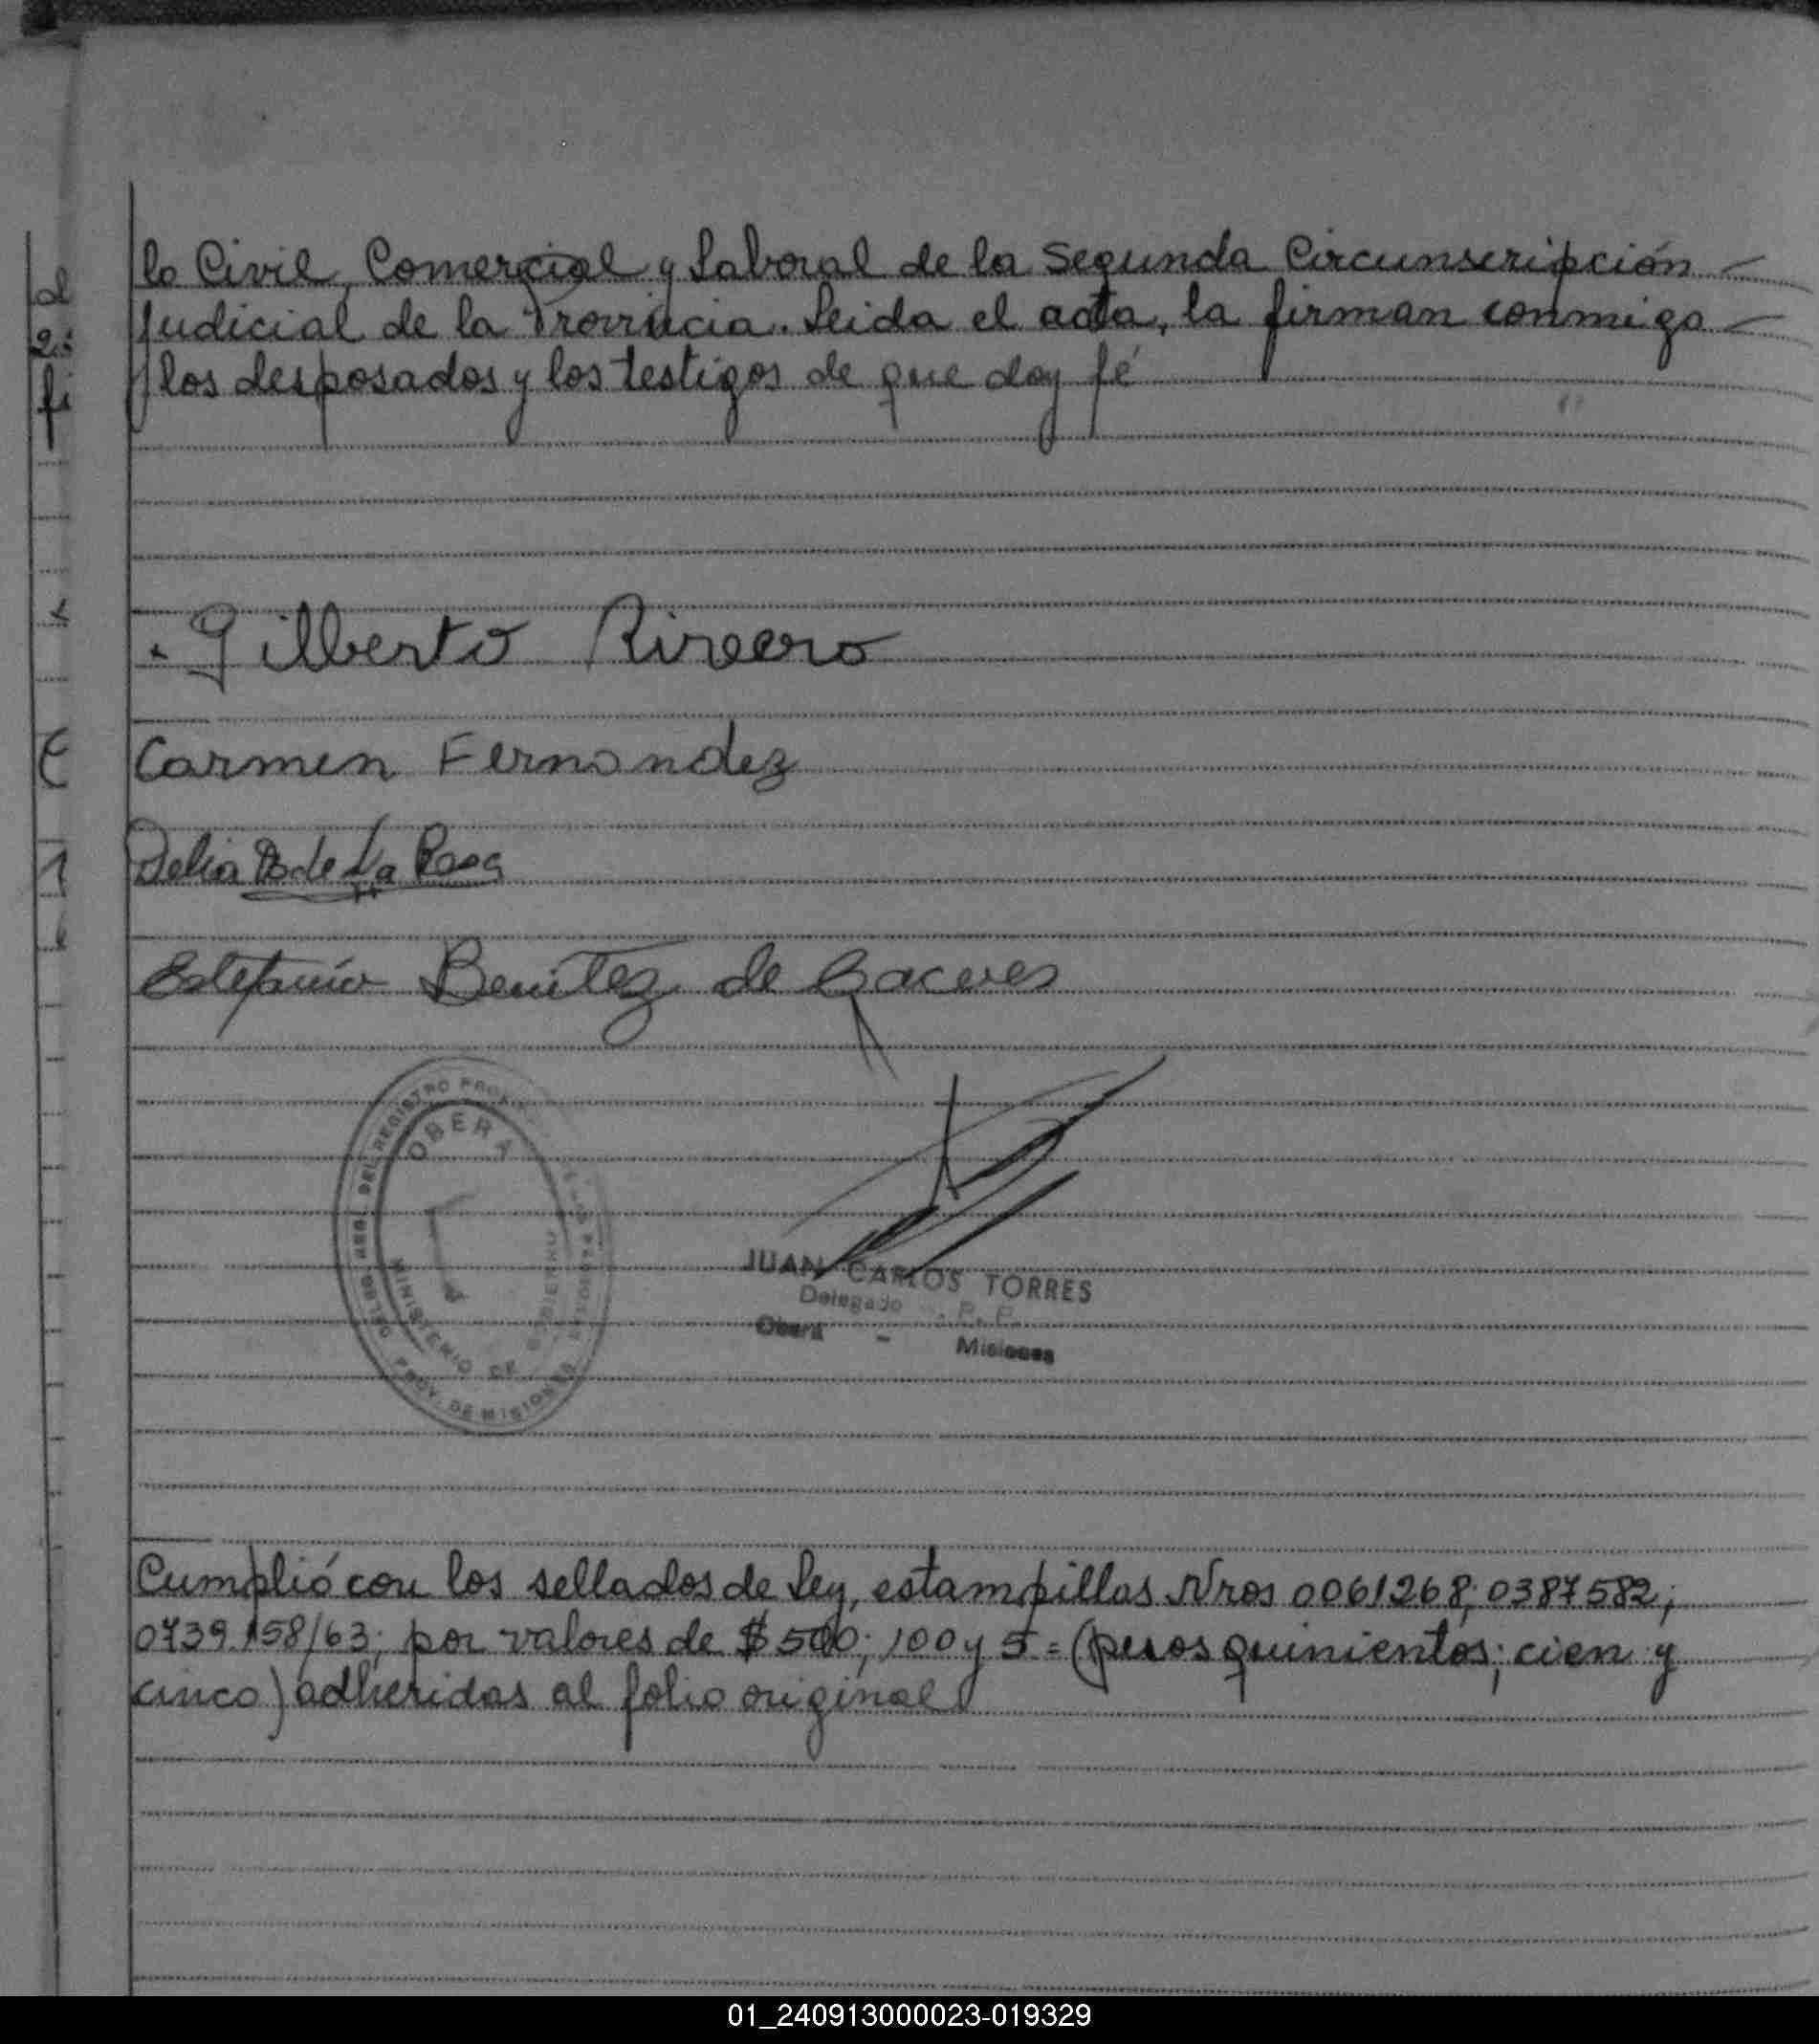 lo Civil, Comercial y Laboral de la Segunda Circunscripción —
Judicial de la Provincia. Leida el acta, la firman conmigo —
los desposados y los testigos de que doy fé
Gilberto Rivero
Carmen Fernandez
Delia B de La Rosa
Estefanía Benitez de
DEL REGISTRO PROV
OBERA
MINISTERIO DE GOBIERNO
PROV. DE MISIONES
JUAN CARLOS TORRES
Delegado R. P.
Oberá - Misiones
Cumplió con los sellados de Ley, estampillas Nros 0061268; 0387582;
0739158/63; por valores de $ 500; 100 y 5 = (pesos quinientos; cien y
cinco) adheridas al folio original
01_240913000023-019329